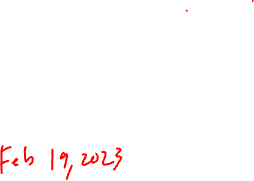 Feb 19, 2023